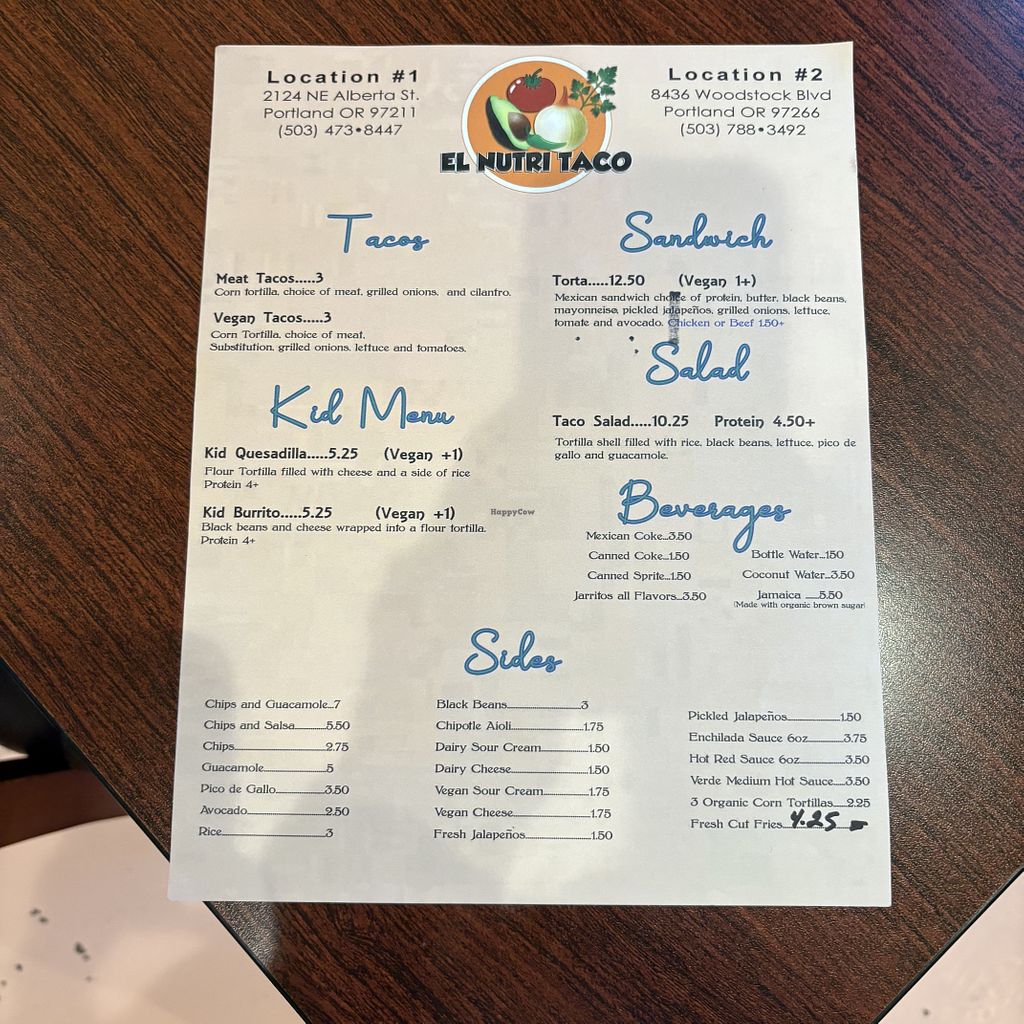 Location #1
2124 NE Alberta St.
Portland OR 97211
(503) 473•8447
EL NUTRI TACO
Location #2
8436 Woodstock Blvd
Portland OR 97266
(503) 788•3492
Tacos
Meat Tacos.....3
Corn tortilla, choice of meat, grilled onions, and cilantro.
Vegan Tacos.....3
Corn Tortilla, choice of meat,
Substitution, grilled onions, lettuce and tomatoes.
Kid Menu
Kid Quesadilla.....5.25 (Vegan +1)
Flour Tortilla filled with cheese and a side of rice
Protein 4+
Kid Burrito.....5.25 (Vegan +1)
Black beans and cheese wrapped into a flour tortilla.
Protein 4+
HappyCow
Sandwich
Torta.....12.50 (Vegan 1+)
Mexican sandwich choice of protein, butter, black beans,
mayonneise, pickled jalapeños, grilled onions, lettuce,
tomate and avocado. Chicken or Beef 1.50+
Salad
Taco Salad.....10.25 Protein 4.50+
Tortilla shell filled with rice, black beans, lettuce, pico de
gallo and guacamole.
Beverages
Mexican Coke...3.50
Canned Coke...1.50
Canned Sprite...1.50
Jarritos all Flavors...3.50
Bottle Water...150
Coconut Water...3.50
Jamaica .....5.50
(Made with organic brown sugar)
Sides
Chips and Guacamole...7
Chips and Salsa..........5.50
Chips..........2.75
Guacamole..........5
Pico de Gallo..........3.50
Avocado..........2.50
Rice..........3
Black Beans..........3
Chipotle Aioli..........1.75
Dairy Sour Cream..........1.50
Dairy Cheese..........1.50
Vegan Sour Cream..........1.75
Vegan Cheese..........1.75
Fresh Jalapeños..........1.50
Pickled Jalapeños..........1.50
Enchilada Sauce 6oz..........3.75
Hot Red Sauce 6oz..........3.50
Verde Medium Hot Sauce....3.50
3 Organic Corn Tortillas....2.25
Fresh Cut Fries..4.25